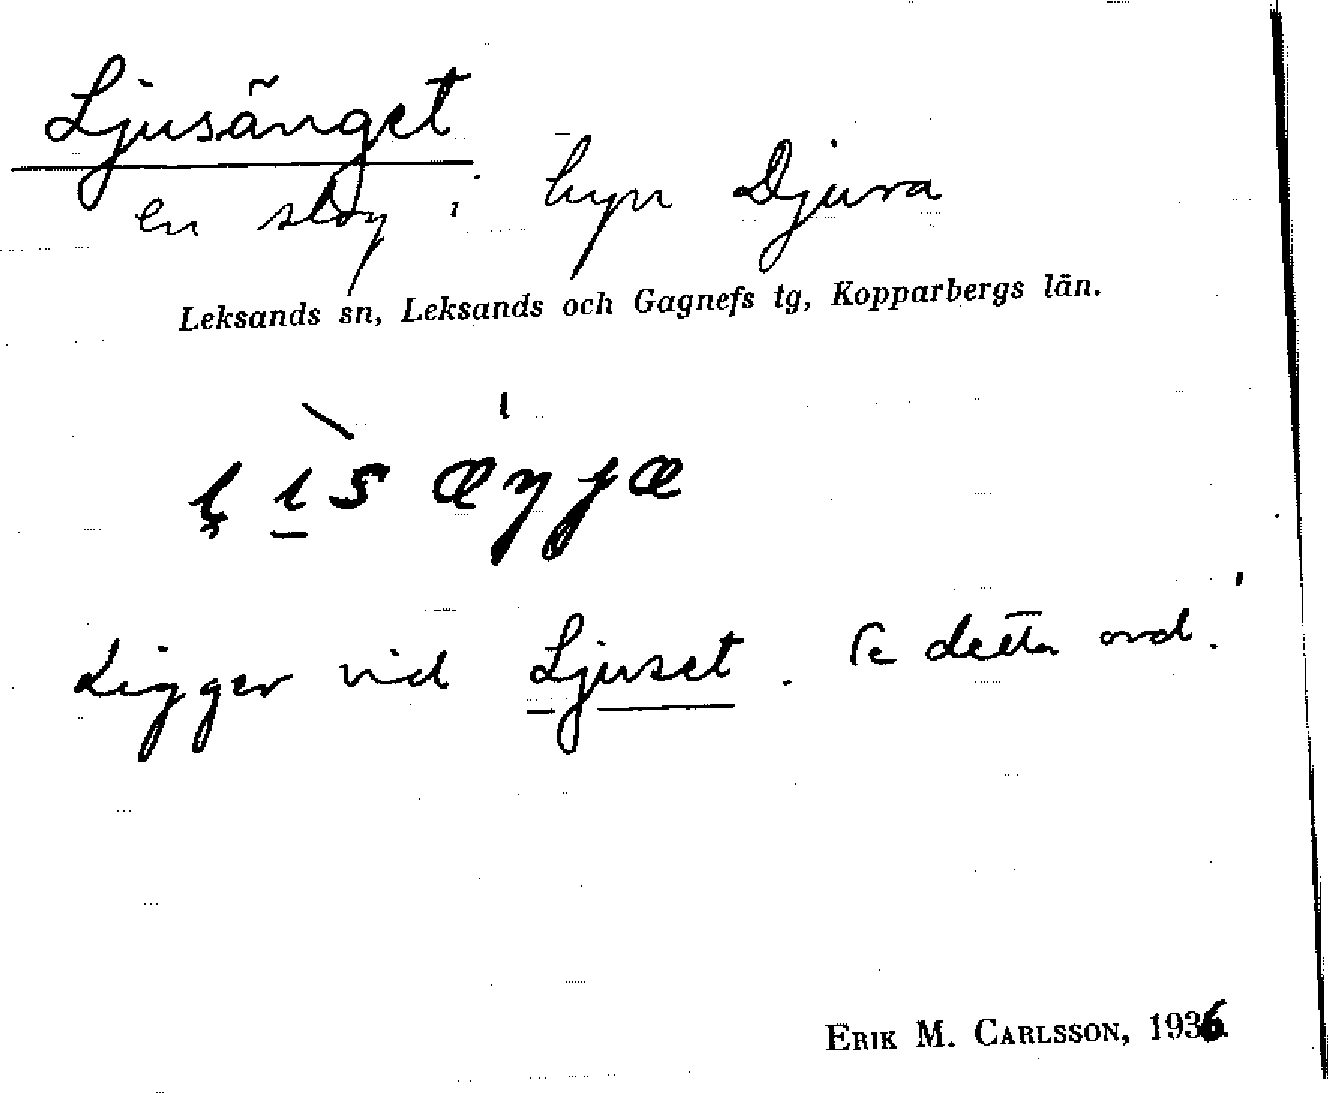 Ljusänget
en skog i byn Djura
Leksands sn, Leksands och Gagnefs tg, Kopparbergs län.
Ligger vid Ljuset. Se detta ord.
ERIK M. CARLSSON, 1936.